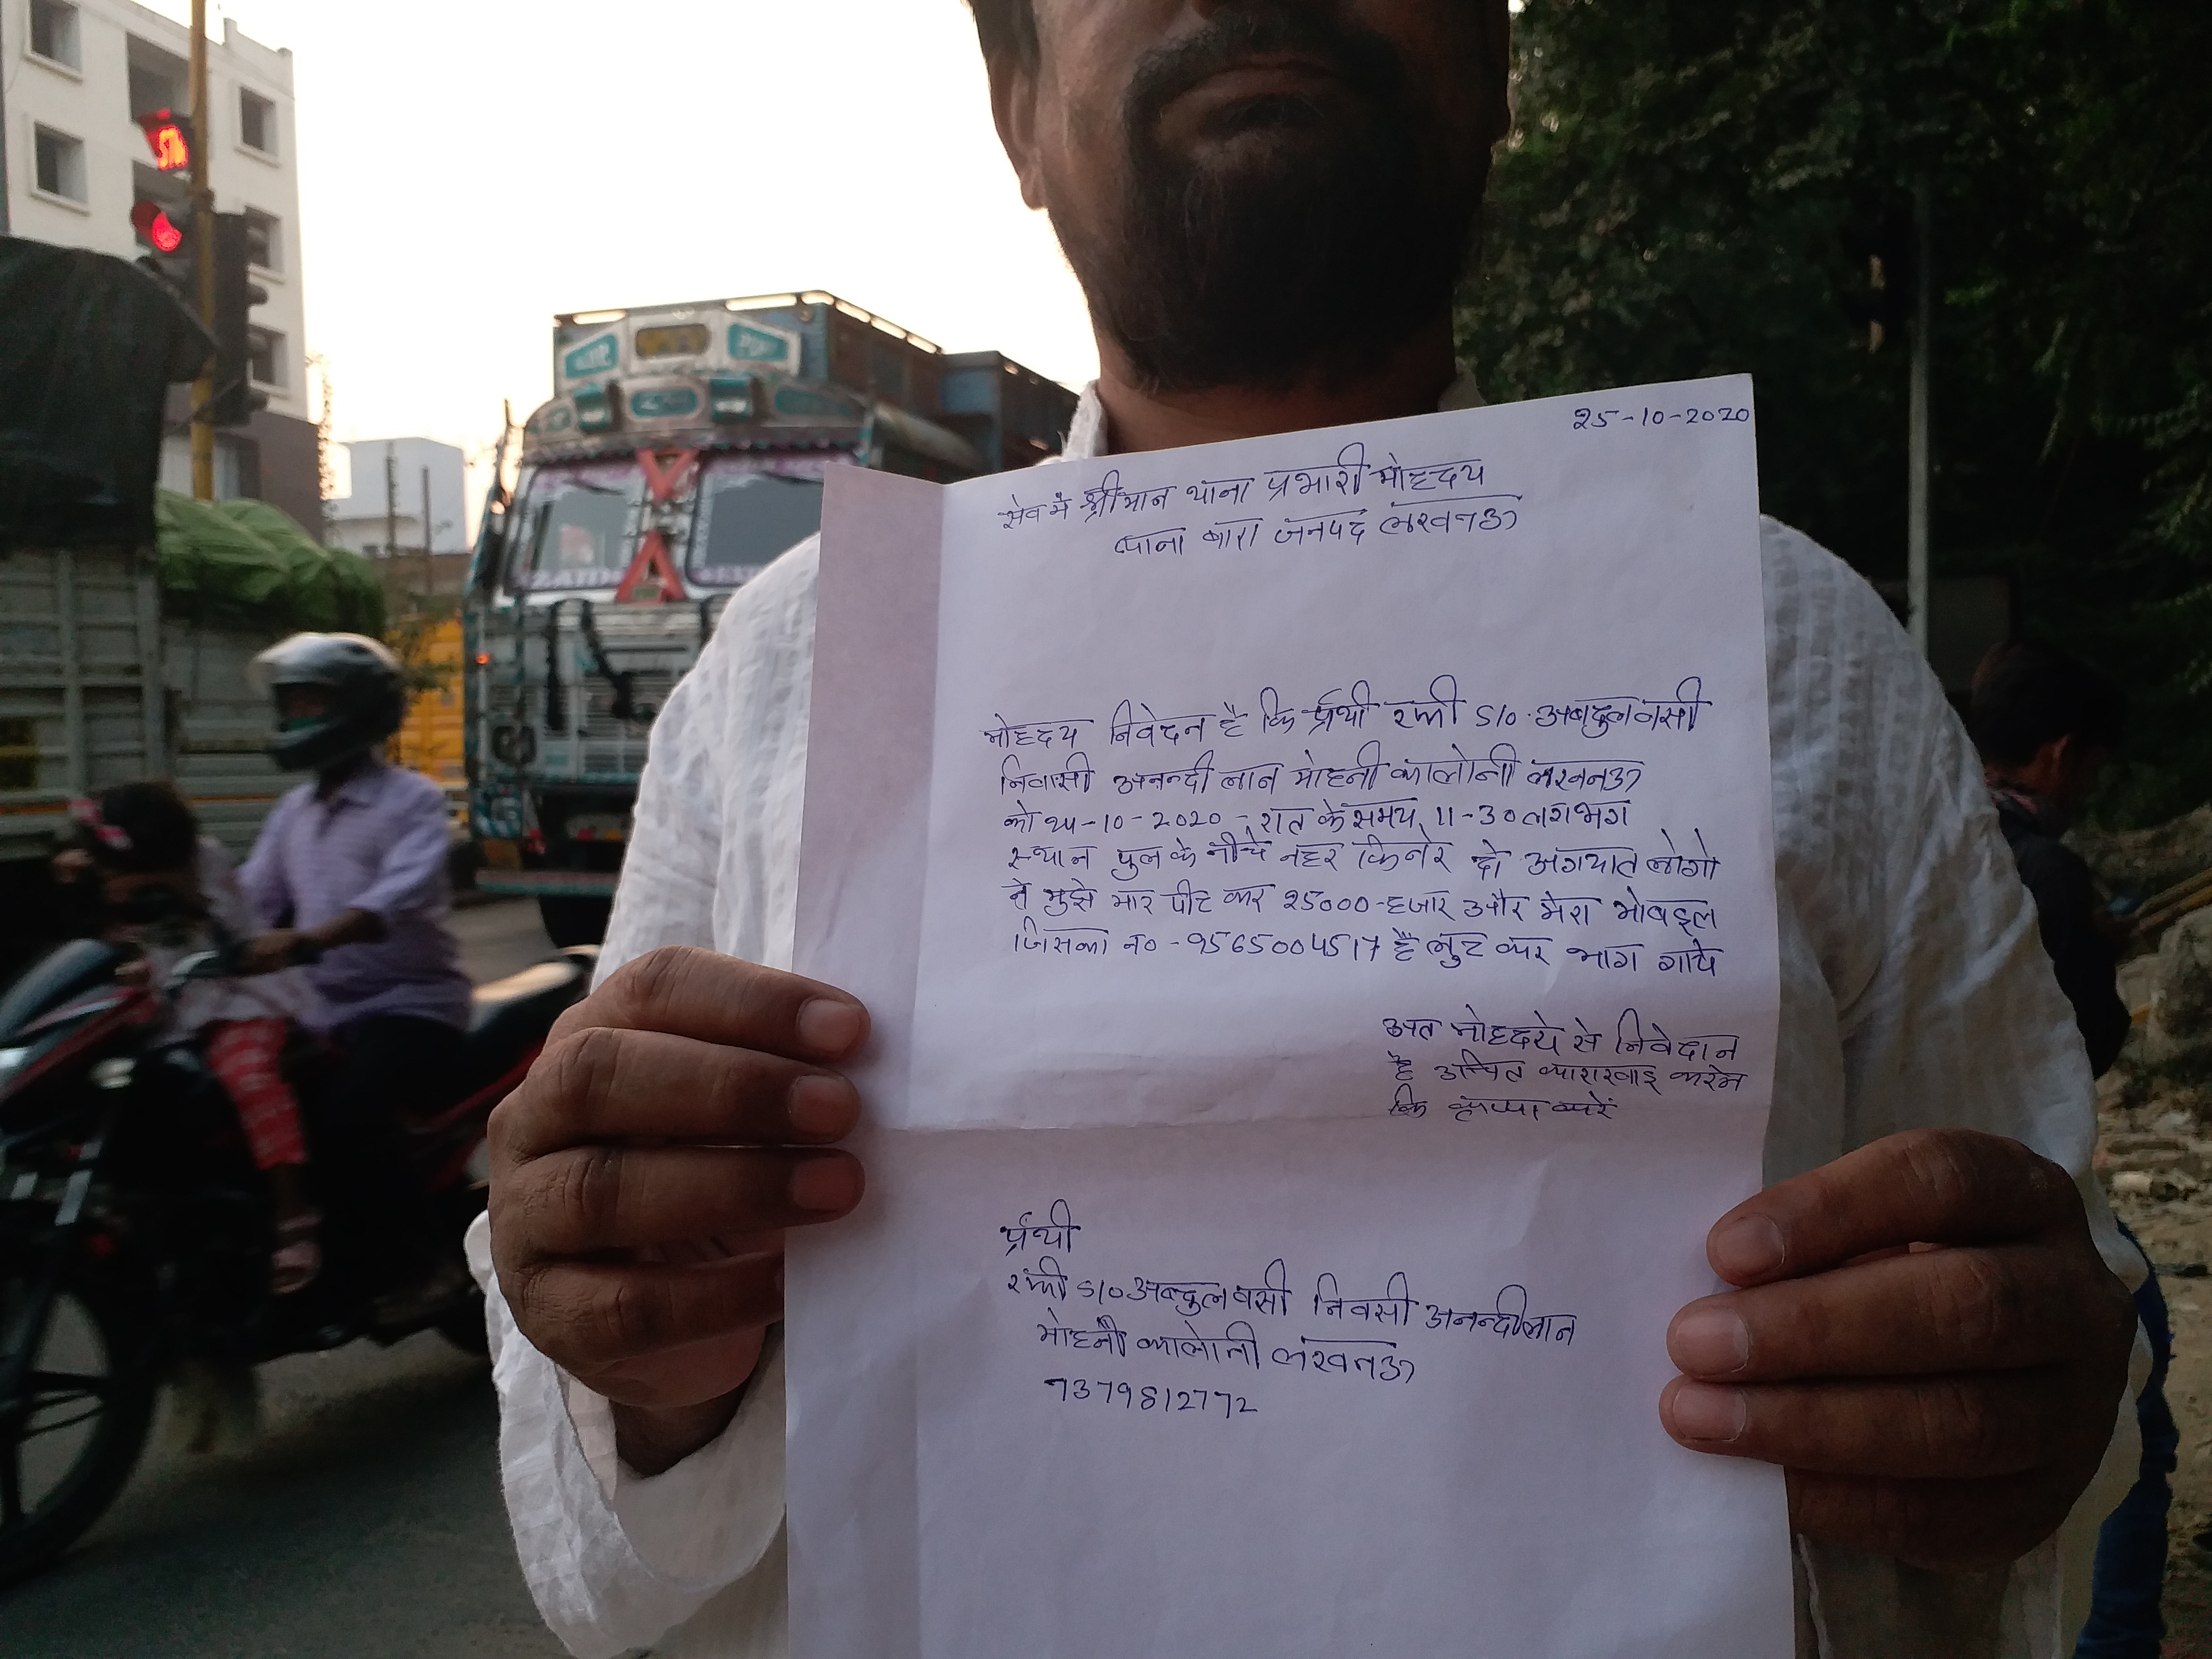 25-10-2020
सेव में श्रीमान थाना प्रभारी मोहदय
थाना बारा जनपद लखनऊ
मोहदय निवेदन है कि र्प्राथी रफी S/O अबदुल वसी
निवासी अनन्दी लान मोहनी कालोनी लखनऊ
को 24-10-2020 - रात के समय 11-30 लगभग
स्थान पुल के नीचे नहर किनेर दो अंगयात लोगो
ने मुझे मार पीट कर 25000-हजार और मेरा मोबइल
जिसका न० - 9565004517 है लुट कर भाग गाये
अत मोहदये से निवेदान
है उचित कारारवाइ करेन
कि कृप्पा करें
र्प्राथी
रफी S/O अब्दुल वसी निवसी अनन्दी लान
मोहनी कालोनी लखनऊ
7379812772